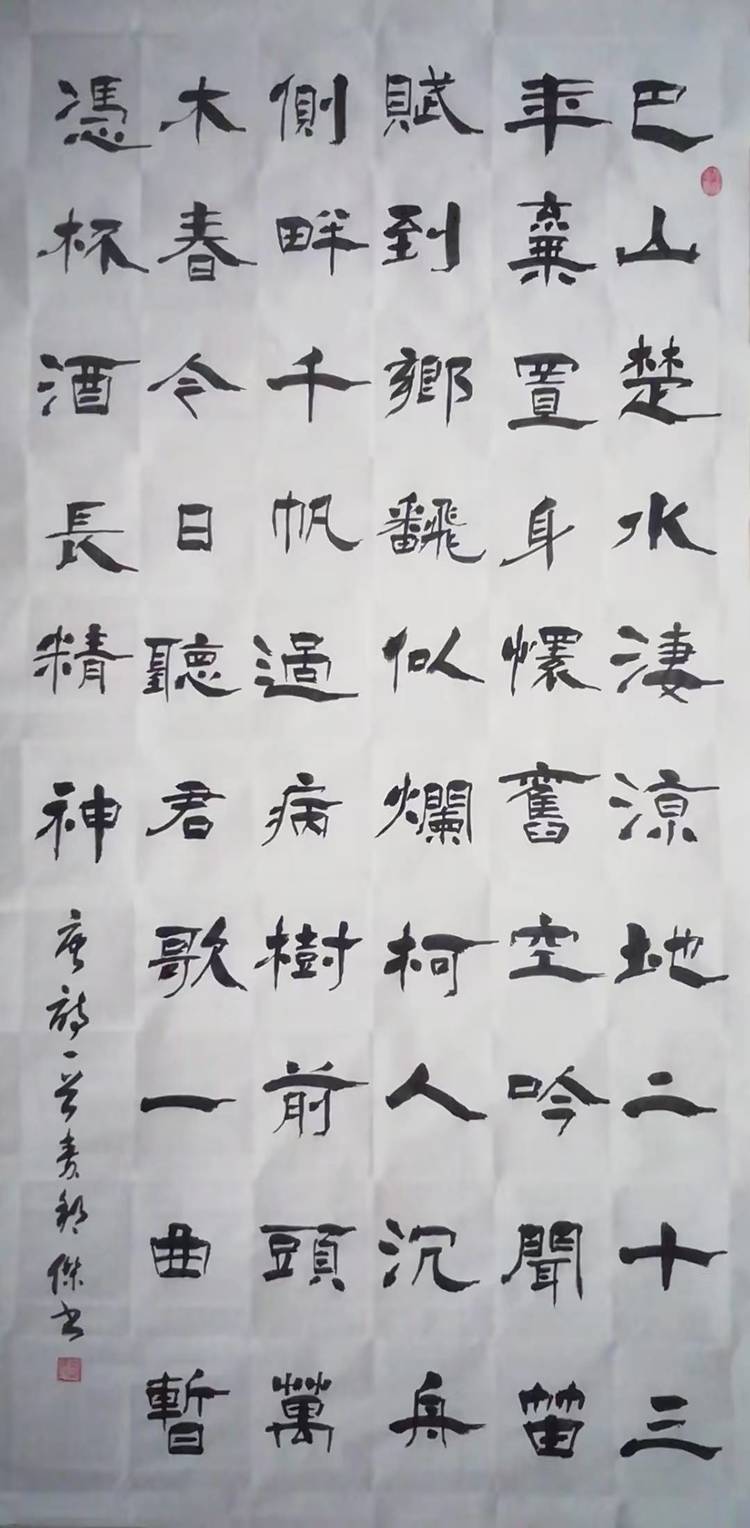 巴山楚水淒涼地二十三
年棄置身懷舊空吟聞笛
賦到鄉飜似爛柯人沉舟
側畔千帆過病樹前頭萬
木春今日聽君歌一曲暫
憑杯酒長精神
唐詩一首傑書